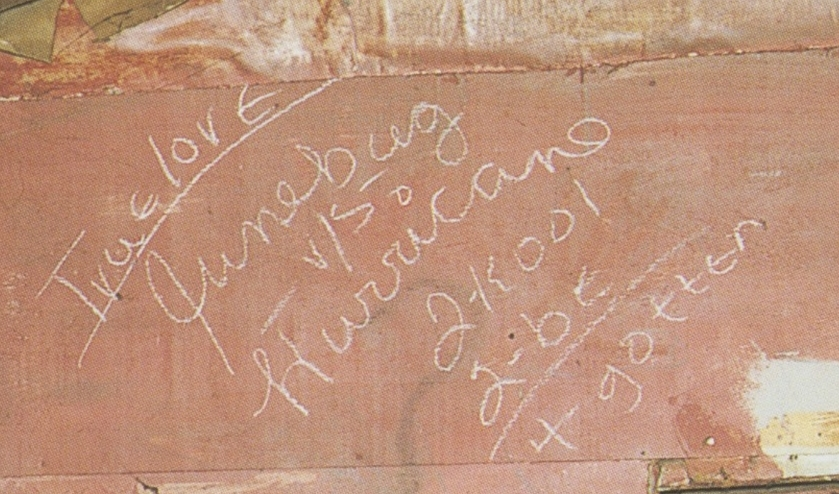 True lovE
Junebug
v/s.
Hurricane
2-kool
2-be
4 gotten